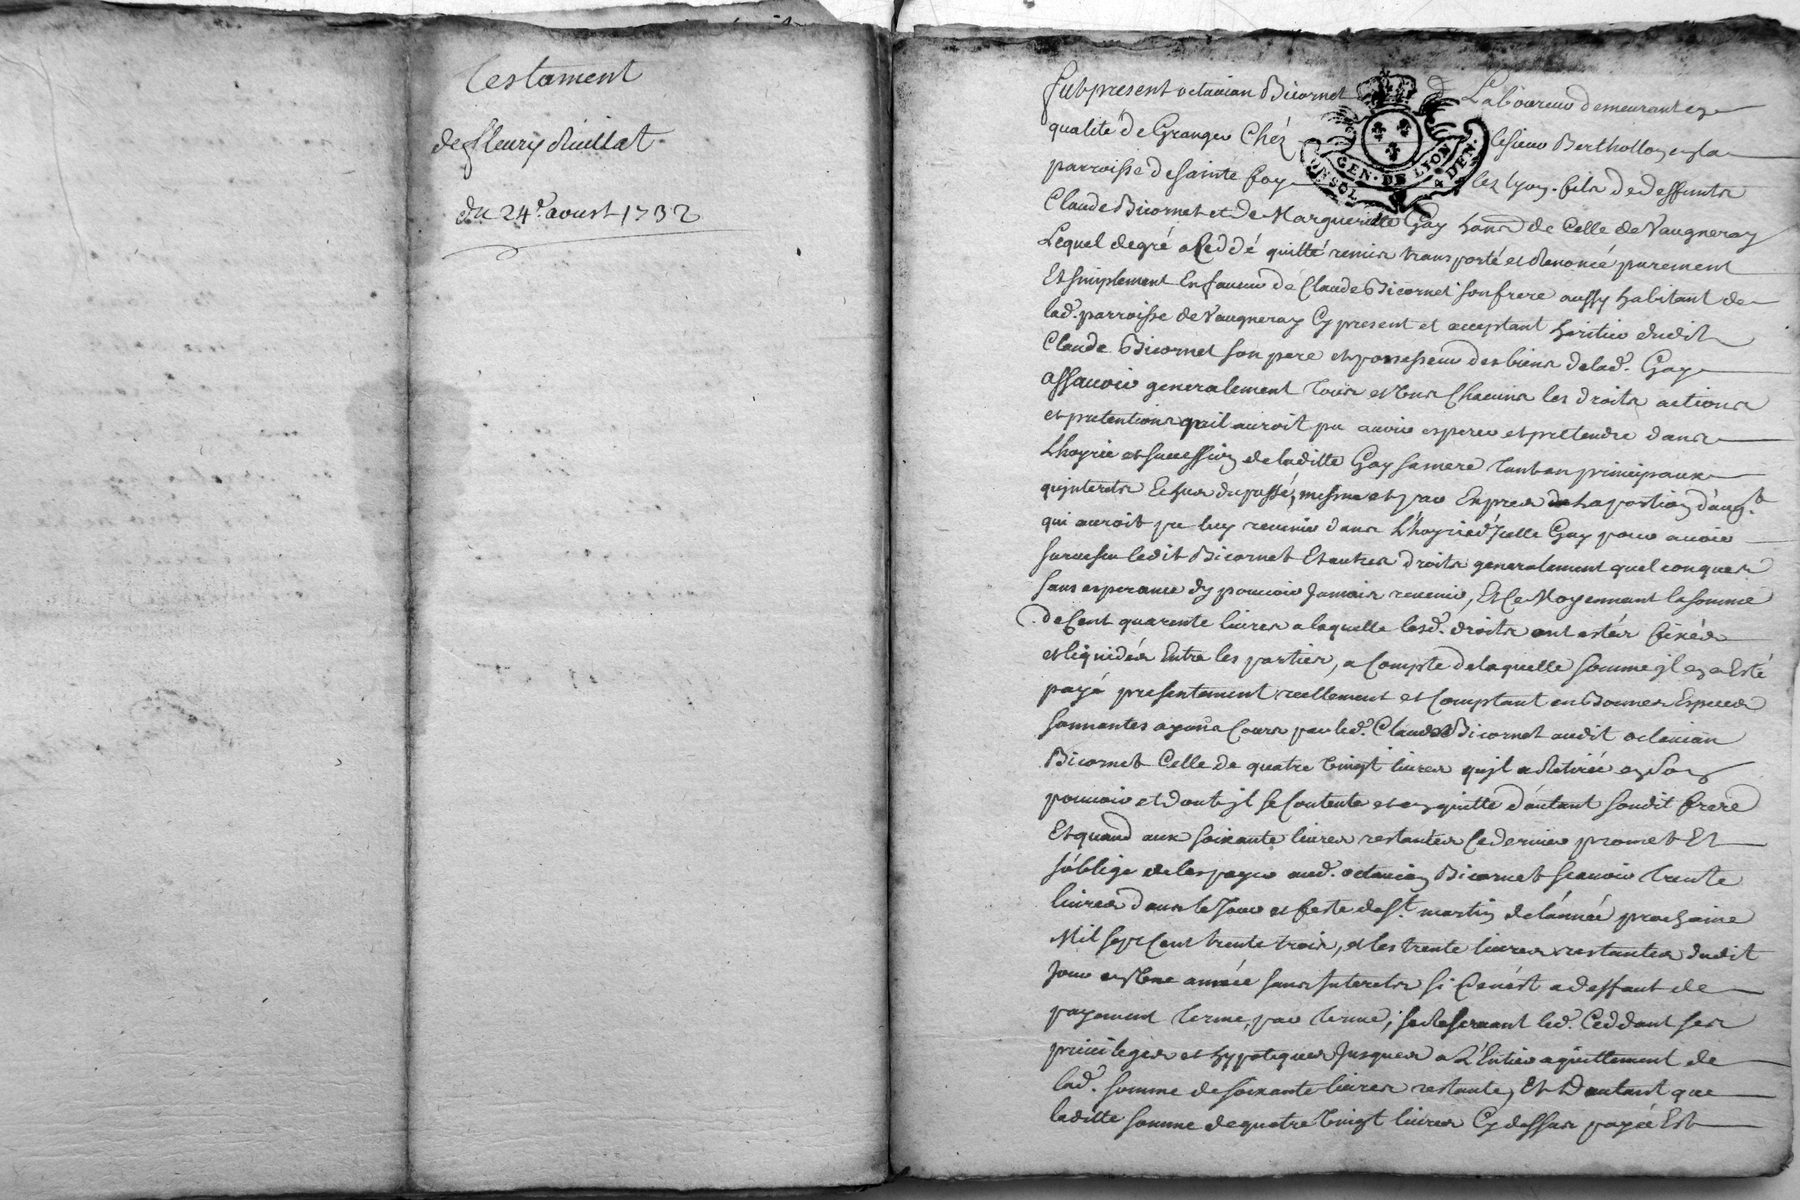 Testament
de fleury Ruillat
du 24e. aoust 1732
GEN. DE LYON
4 DEN.
fut present octavian Bicornet Laboureur demeurant en
qualité de Granger Chéz le sieur Bertholon en la
parroisse de sainte foy les lyon. fils de deffunts
Claude Bicornet et de Margueritte Gay hans de Celle de Vaugneray
Lequel de gré a Ceddé quitté remis transporté et Renoncé purement
Et simplement En faveur de Claude Bicornet son frere aussy habitant de
lad. parroisse de Vaugneray Cy present et acceptant heritier dudit
Claude Bicornet son pere et possesseur des biens de lad. Gay
assavoir generalement Tous et tous Chacuns les droits actions
et pretentions qu'il auroit pu avoir esperer et pretendre dans
L'hoyrie et succession de laditte Gay sa mere Tant en principaux
qu'interets Echus du passé, mesme et par Expres de la portion d'aug.t
qui auroit pu luy revenir dans L'hoyrie d'Icelle Gay pour avoir
survescu ledit Bicornet Et autres droits generalement quelconques
sans esperance d'y pouvoir Jamais revenir, Et Ce Moyennant la somme
de Cent quarente livres a laquelle lesd. droits ont estés fixés
et liquidés Entre les parties, a Compte de laquelle somme il en a Esté
payé presentement reellement et Comptant en Bonnes Especes
sonnantes ayans Cours par led. Claude Bicornet audit octavian
Bicornet Celle de quatre Vingt livres qu'il a Retirée en son
pouvoir et dont il se Contente et en quitte d'autant sondit frere
Et quand aux soixante livres restantes Ce dernier promet Et
s'oblige de les payer aud. octavian Bicornet scavoir Trente
livres dans le Jour et feste de St. martin de l'année prochaine
Mil sept Cent trente trois, et les trente livres restantes dudit
Jour en Une année sans Interets si Ce n'est a deffaut de
payement Terme, par Terme, se Reservant led. Ceddant ses
privileges et hypoteques Jusques a L'Entier aquittement de
lad. somme de soixante livres restante, Et D'autant que
laditte somme de quatre Vingt livres Cy dessus payée Est